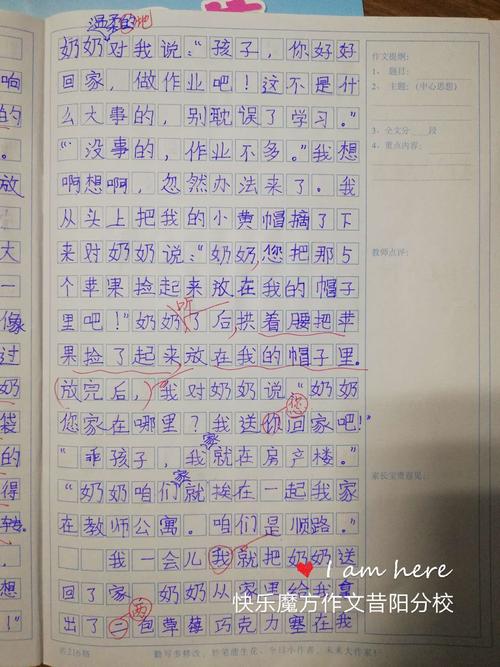 温柔的地
奶奶对我说:“孩子,你好好
回家,做作业吧!这不是什
么大事的,别耽误了学习。”
“没事的,作业不多。”我想
啊想啊,忽然办法来了。我
从头上把我的小黄帽摘了下
来对奶奶说:“奶奶,您把那5
个苹果捡起来放在我的帽子
里吧!”奶奶听了后拱着腰把苹
果捡了起来放在我的帽子里。
放完后,我对奶奶说“奶奶
您家在哪里?我送你回家吧!”
您
“乖孩子,我家就在房产楼。”
“奶奶咱们家就挨在一起我家
在教师公寓。咱们是顺路。”
我一会儿我就把奶奶送
回了家 奶奶从家里给我拿
出了二包草莓巧克力塞在我
两
作文提纲:
1、题目:
2、主题:(中心思想)
3、全文分 段
4、重点内容:
教师点评:
家长宝贵意见:
响
的
。
放
大
一
像
过
奶
袋
的
得
想
!”
I am here
快乐魔方作文昔阳分校